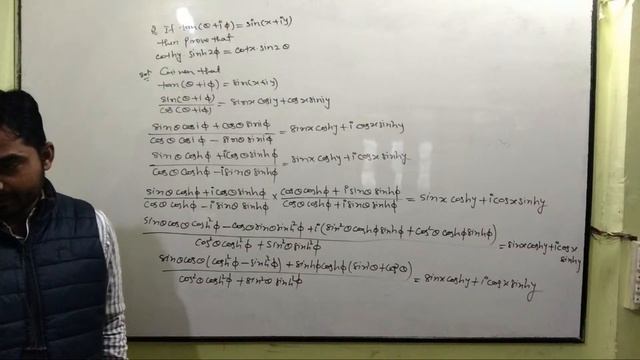 Q. If tan(θ+iφ)=sin(x+iy)
then prove that
cothy sinh2φ = cotx sin2θ
Sol: Given that
tan(θ+iφ) = sin(x+iy)
sin(θ+iφ)/cos(θ+iφ) = sinx cosiy + cosx siniy
sinθ cosiφ + cosθ siniφ / cosθ cosiφ − sinθ siniφ = sinx coshy + i cosx sinhy
sinθ coshφ + i cosθ sinhφ / cosθ coshφ − i sinθ sinhφ = sinx coshy + i cosx sinhy
sinθ coshφ + i cosθ sinhφ / cosθ coshφ − i sinθ sinhφ × cosθ coshφ + i sinθ sinhφ / cosθ coshφ + i sinθ sinhφ = sinx coshy + i cosx sinhy
sinθ cosθ cosh²φ − cosθ sinθ sinh²φ + i(sin²θ coshφ sinhφ + cos²θ coshφ sinhφ) / cos²θ cosh²φ + sin²θ sinh²φ = sinx coshy + i cosx sinhy
sinθ cosθ (cosh²φ − sinh²φ) + sinhφ coshφ (sin²θ + cos²θ) / cos²θ cosh²φ + sin²θ sinh²φ = sinx coshy + i cosx sinhy